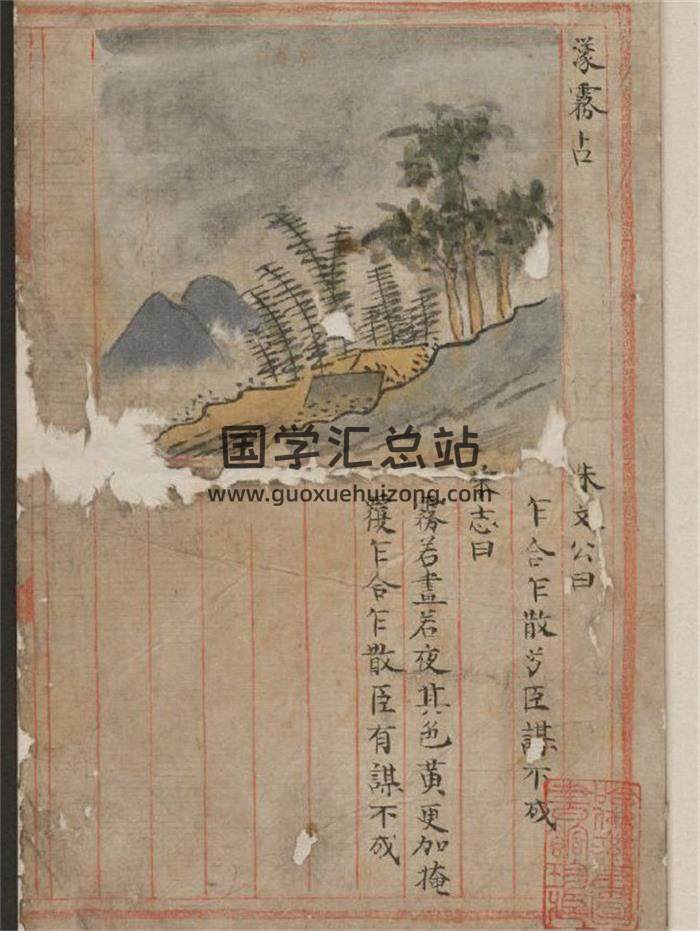 濛霧占
朱文公曰
乍合乍散兮臣謀不成
志曰
霧若晝若夜其色黄更加掩
覆乍合乍散臣有謀不成
国学汇总站
www.guoxuehuizong.com